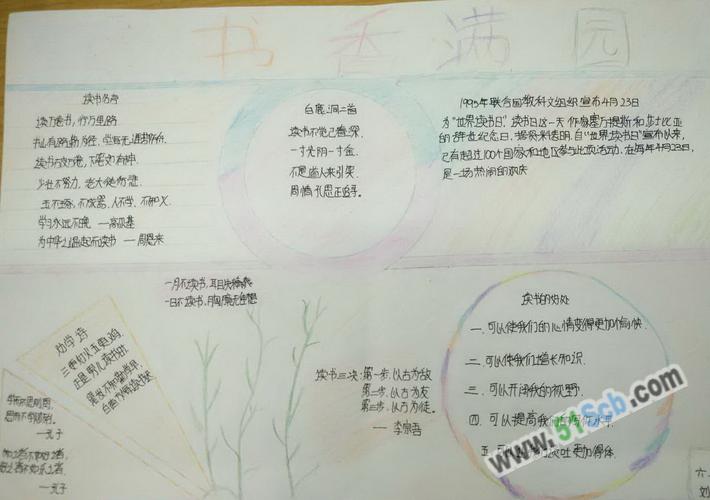 书香满园
读书名言
读万卷书,行万里路
书山有路勤为径,学海无涯苦作舟
读书破万卷,下笔如有神
少壮不努力,老大徒伤悲
玉不琢,不成器,人不学,不知义
学习永远不晚 —高尔基
为中华之崛起而读书 —周恩来
白鹿洞二首
读书不觉已春深
一寸光阴一寸金
不是道人来引笑
周情孔思正追寻。
1995年联合国教科文组织宣布4月23日
为“世界读书日”,读书日这一天作为塞万提斯和莎士比亚
的辞世纪念日,据资料表明,自“世界读书日”宣布以来,
已有超过100个国家和地区参与此项活动,在每年4月23日,
是一场热闹的欢庆
一月不读书,耳目失精爽
一日不读书,胸臆无佳想
劝学诗
三更灯火五更鸡
正是男儿读书时
黑发不知勤学早
白首方悔读书迟
—孔子
—孔子
读书三决:第一步,以古为敌
第二步,以古为友
第三步,以古为徒。
— 李宗吾
读书的好处
一.可以使我们的心情变得更加愉快.
二.可以使我们增长知识.
三.可以开阔我们的视野.
四.可以提高我们的写作水平.
五.可以 谈吐更加得体.
www.51Scb.com
六.
刘